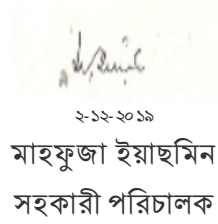 ২-১২-২০১৯
মাহফুজা ইয়াছমিন
সহকারী পরিচালক